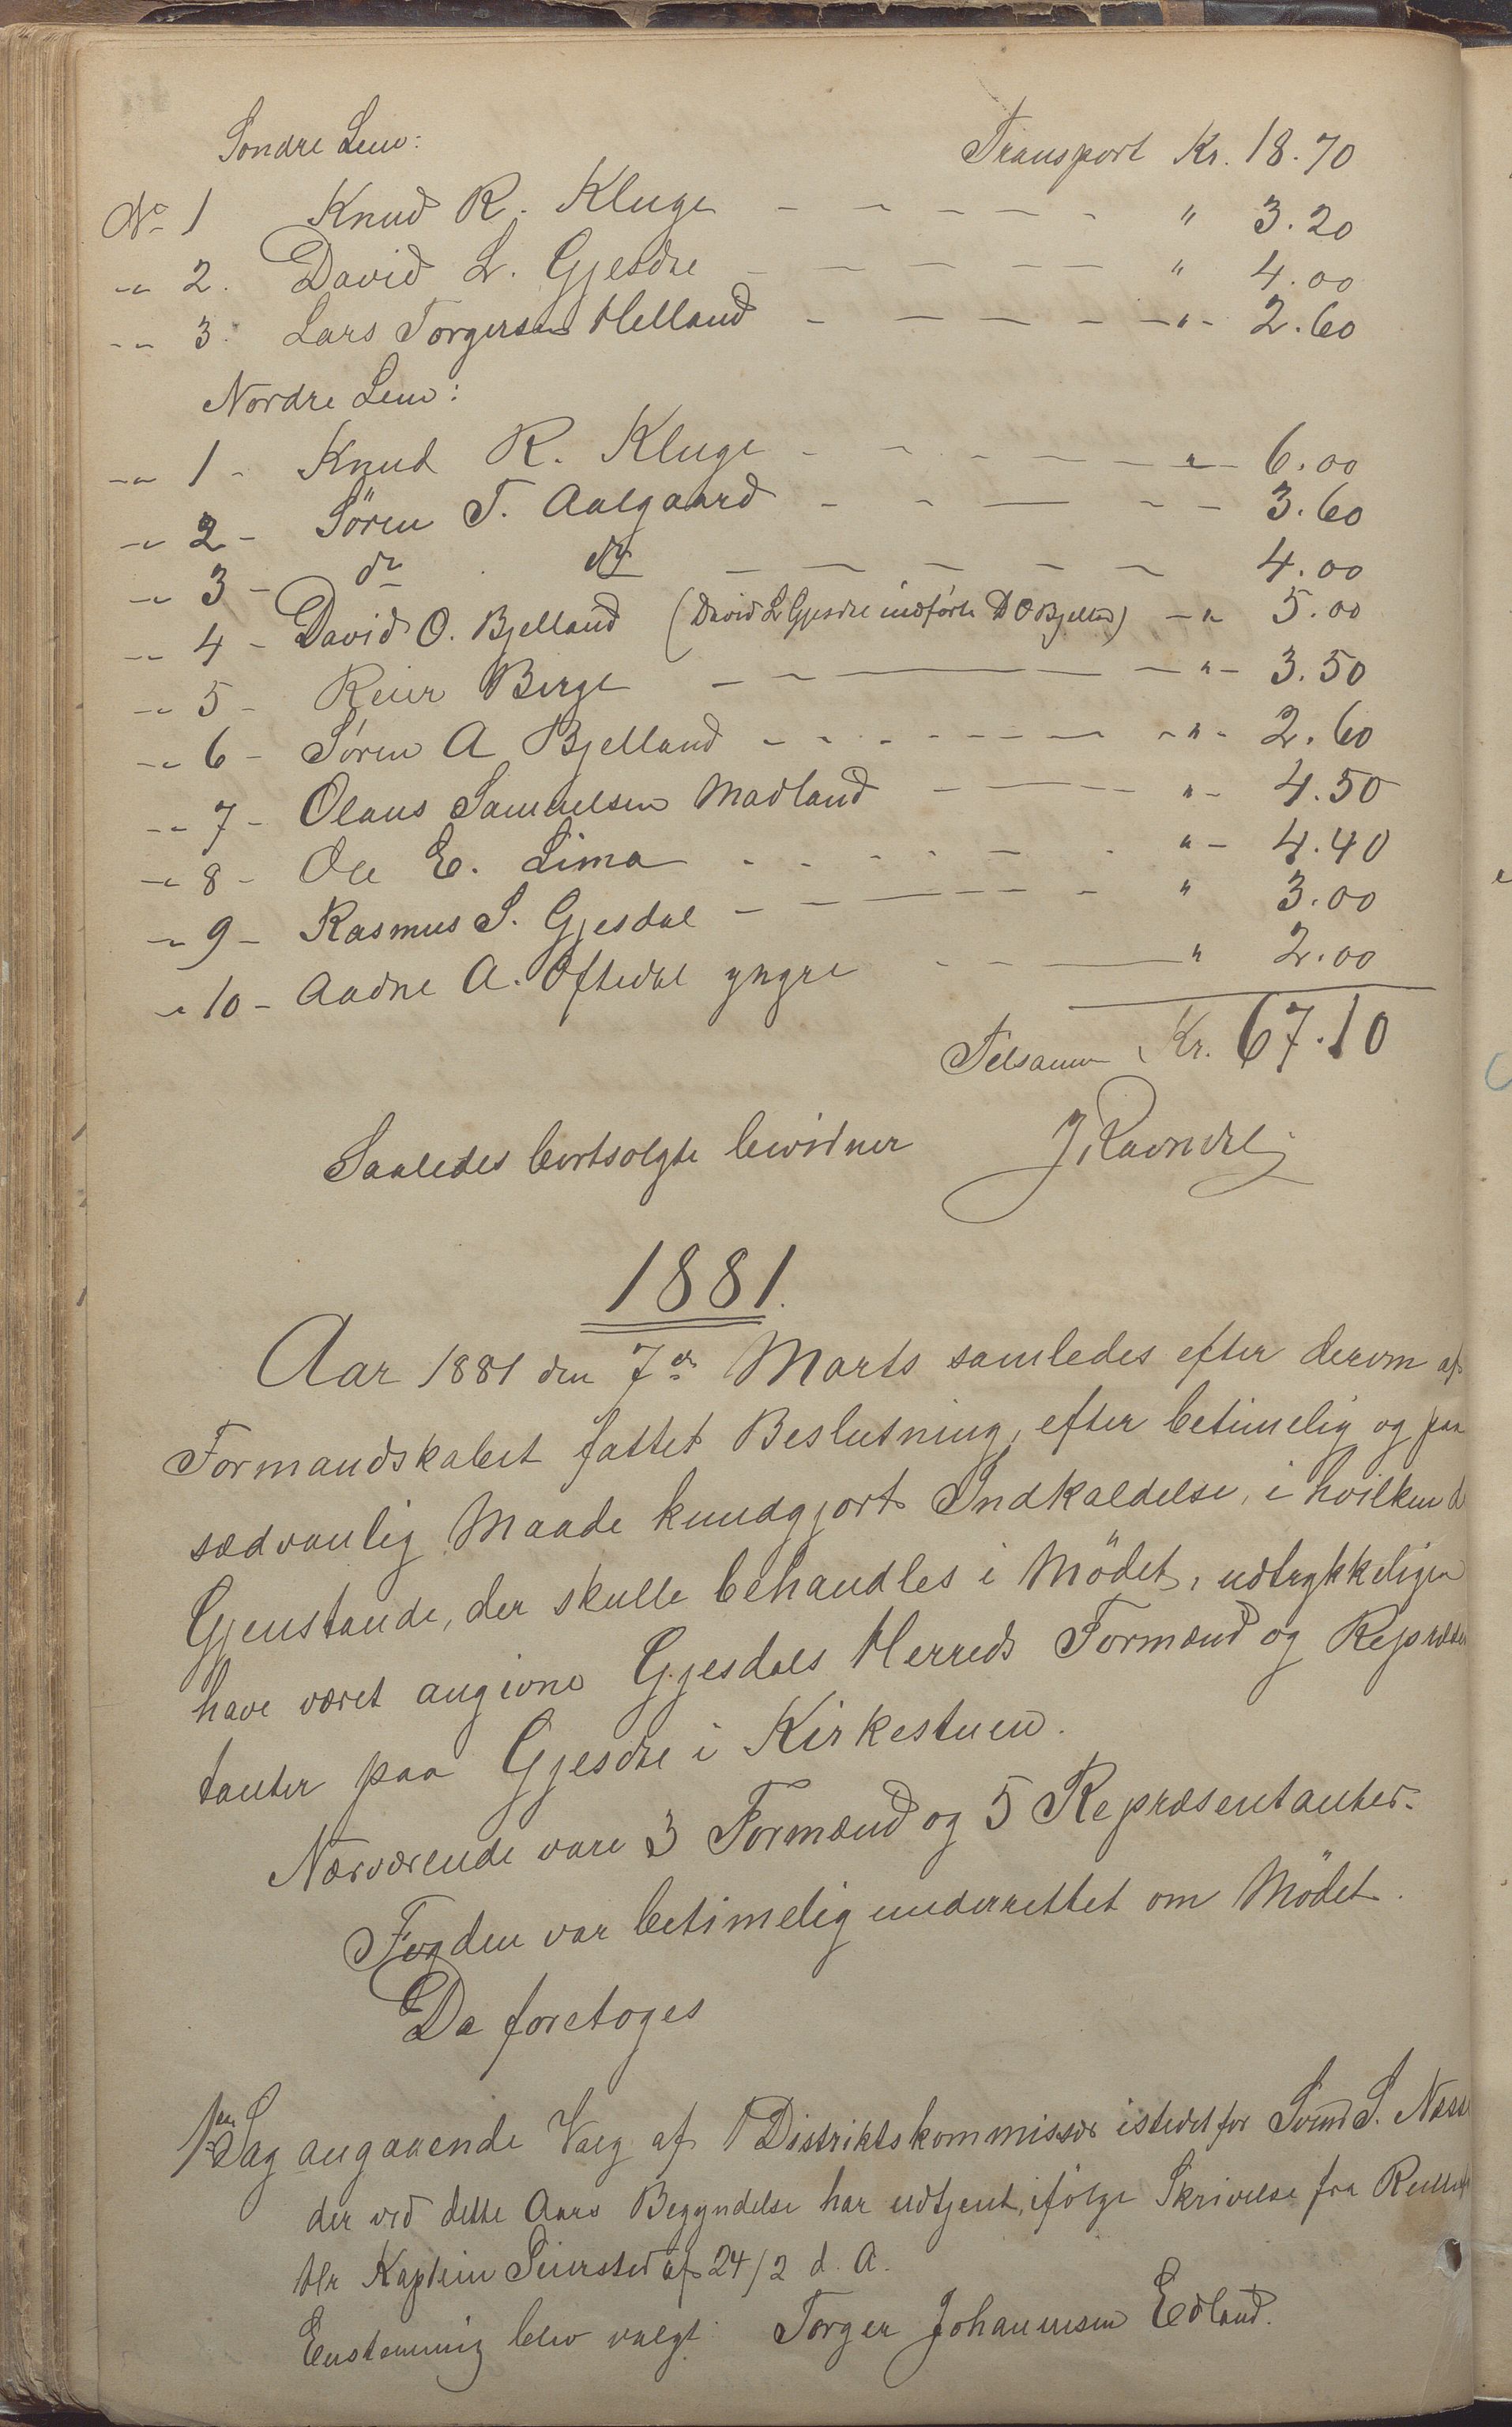 Söndre Lem:
Transport Kr. 18.70
No 1 Knud R. Kluge - - - - - " 3.20
-"- 2. David L. Gjesdal - - - - - " 4.00
-"- 3. Lars Torgersen Helland - - - - -"- 2.60
Nordre Lem:
-"- 1 - Knud R. Kluge - - - - - -"- 6.00
-"- 2 - Sören T. Aalgaard - - - - - 3.60
-"- 3 - do do - - - - - 4.00
-"- 4 - David O. Bjelland (David L Gjesdal indförte D O Bjelland) -"- 5.00
-"- 5 - Reier Berge - - - -"- 3.50
-"- 6 - Sören A Bjelland - - - - - - - -"- 2.60
-"- 7 - Olaus Samuelsen Madland - - - "- 4.50
-"- 8 - Ole E. Lima - - - - - - "- 4.40
-"- 9 - Rasmus S. Gjesdal - - - - - - " 3.00
-"- 10 - Aadne A. Oftedal yngre - - - " 2.00
Tilsamm Kr. 67.10
Saaledes bortsolgte bevidner J. Ravndal
1881.
Aar 1881 den 7de Marts samledes efter derom af
Formandskabet fattet Beslutning, efter betimelig og paa
sædvanlig Maade kundgjort Indkaldelse, i hvilken d
Gjenstande, der skulle behandles i Mödet, udtrykkeligen
have været angivne Gjesdals Herreds Formænd og Repræsen
tanter paa Gjesdal i Kirkestuen.
Nærværende vare 3 Formænd og 5 Repræsentanter.
Fogden var betimelig underrettet om Mödet.
Da foretoges
1ste Sag angaaende Valg af 1 Distriktskommissær istedet for Svend S. Næss
der ved dette Aars Begyndelse har udtjent, ifölge Skrivelse fra
Hr Kaptein Seiersted af 24/2 d. A.
Enstemmig blev valgt: Torger Johannesen Edland.